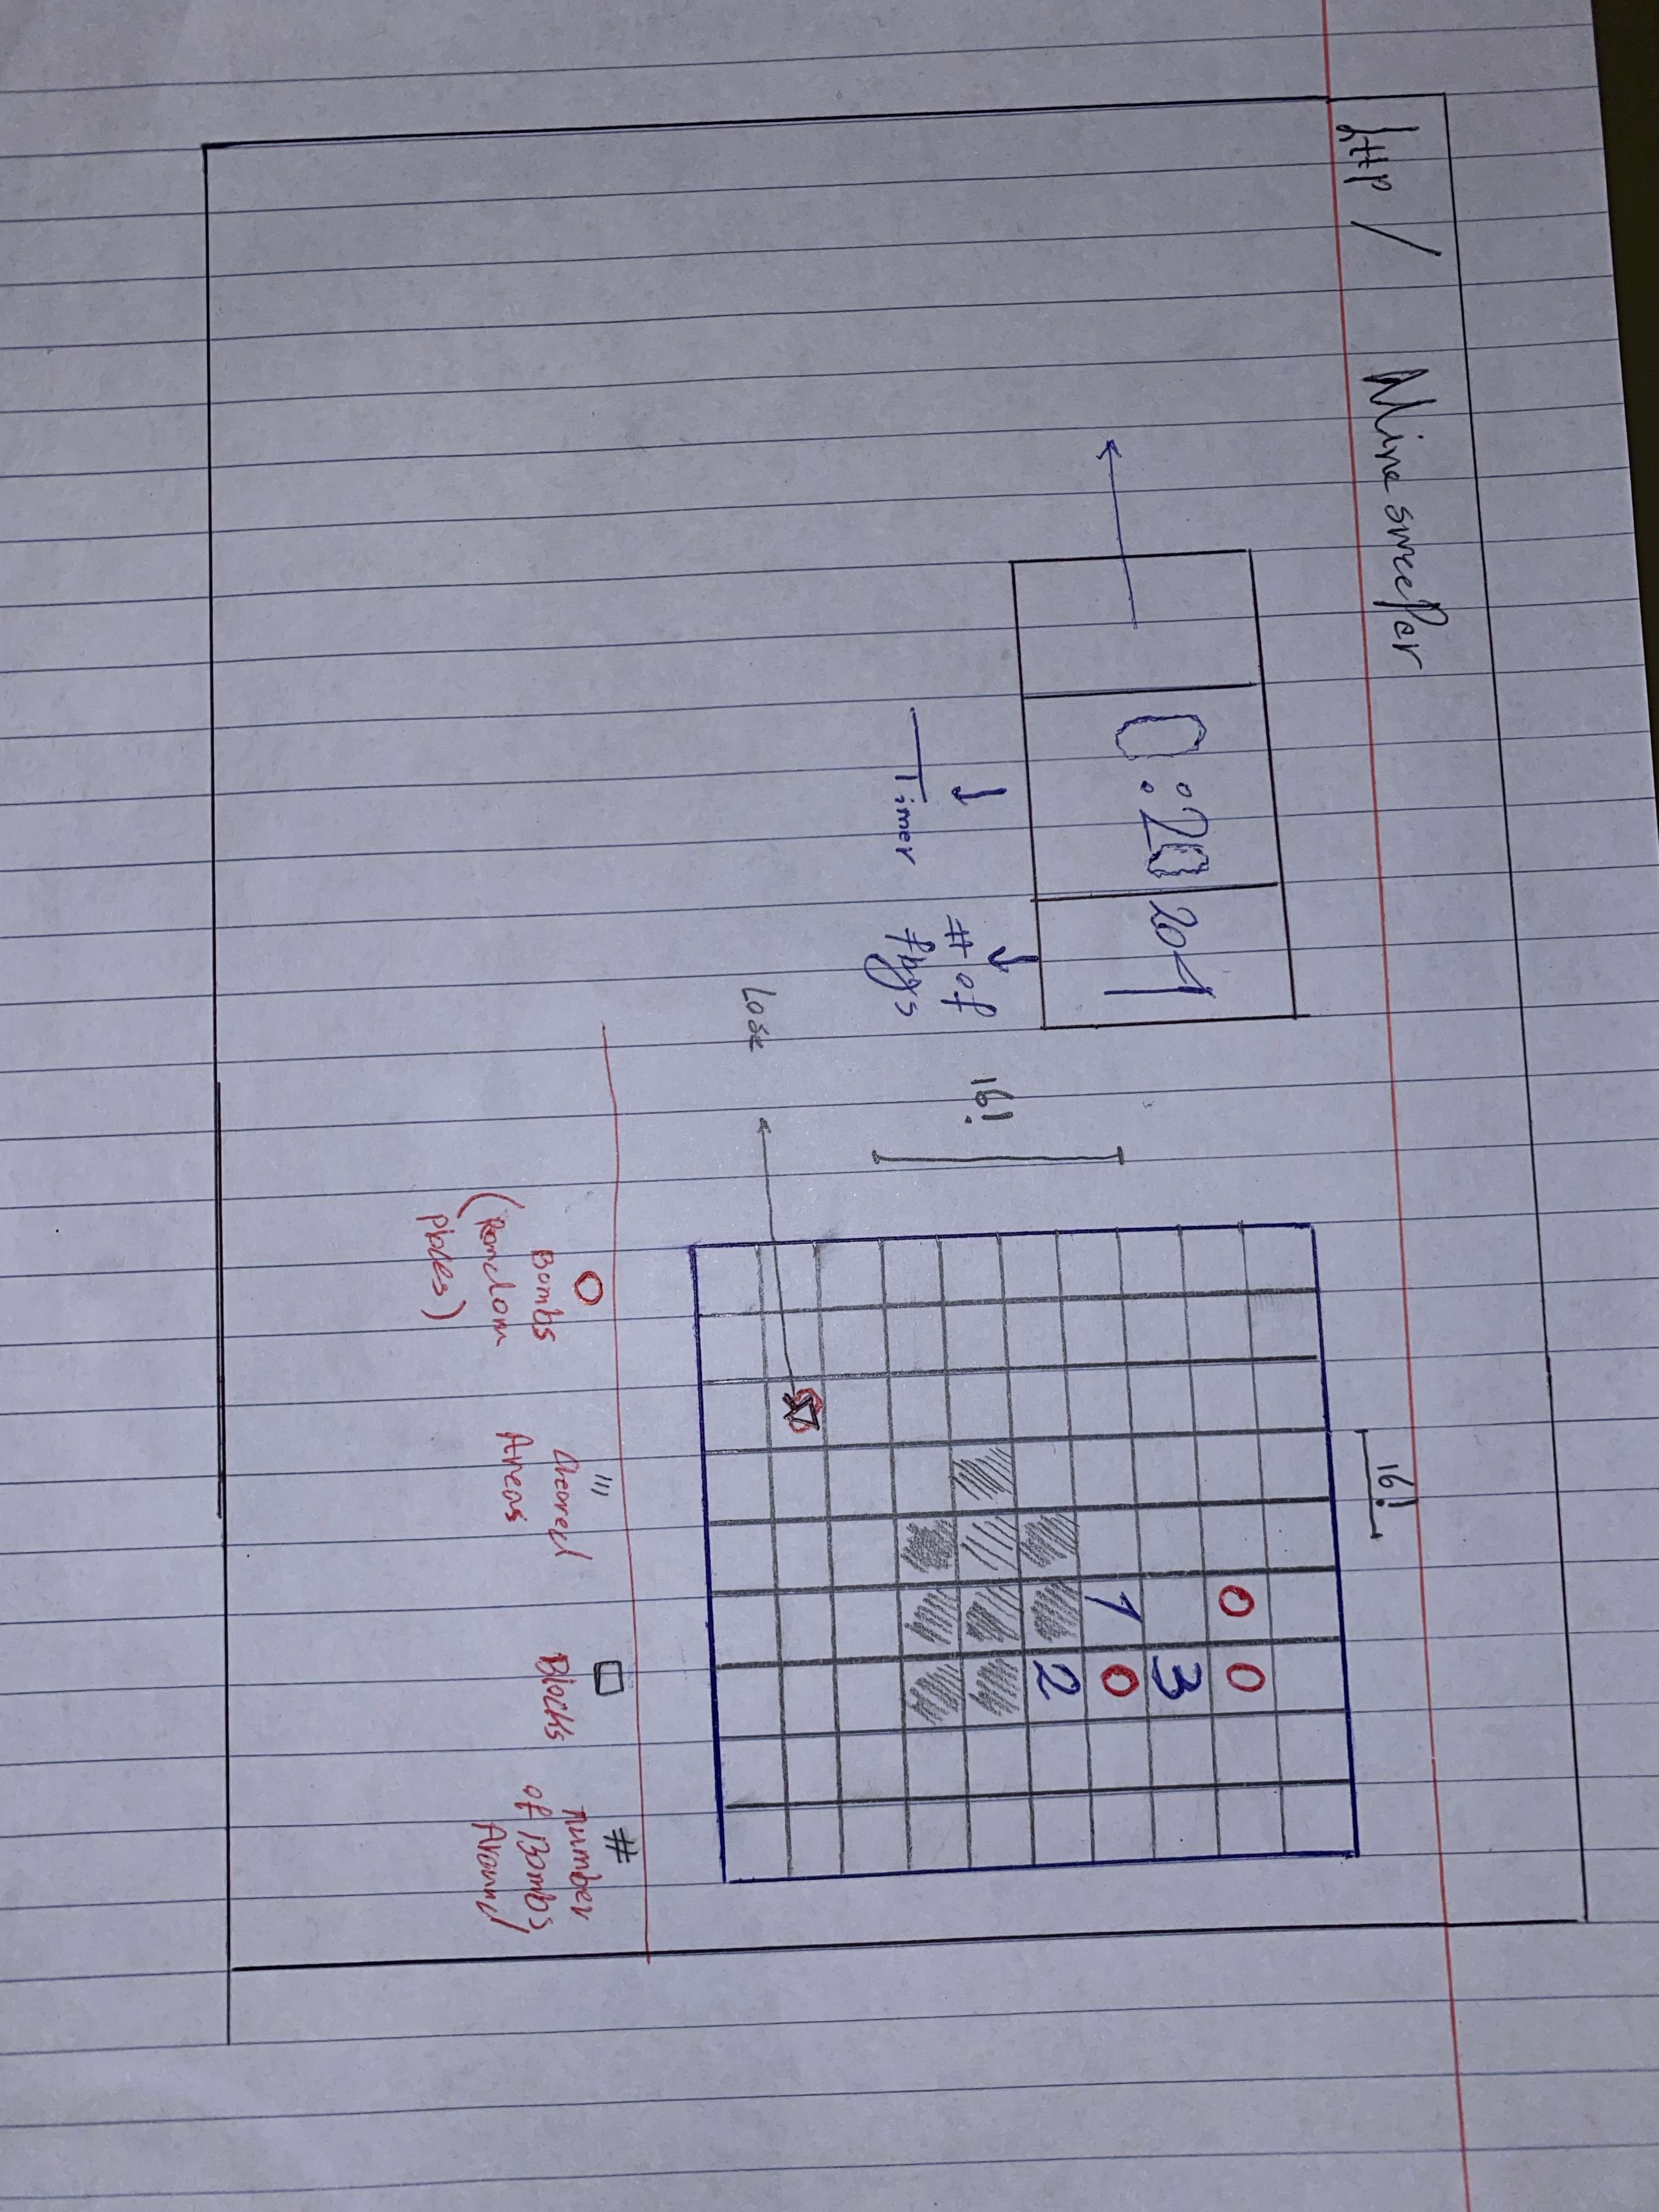 http / Minesweeper
16!
0:20 20
Timer
# of
flags
16!
0 0
3
1 0
2
Lose
Bombs
(Random
places)
Cleared
Areas
Blocks
#
number
of Bombs
Around